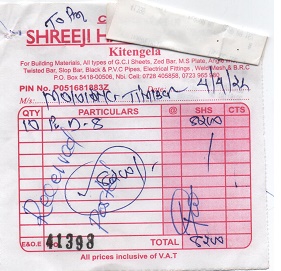 To
C
SHREEJI H
Kitengela
For Building Materials, All types of G.C.I Sheets, Zed Bar, M.S Plate, Angle
Twisted Bar, Slop Bar, Black & P.V.C Pipes, Electrical Fittings, Weld Mesh & B.R.C
P.O. Box 5418-00506, Nbi. Cell: 0728 405858, 0723 965
PIN No. P051681883Z
M/s:
QTY PARTICULARS @ SHS CTS
10 8200
Received
Posted
8200/
E&O.E 41393 TOTAL 8200
All prices inclusive of V.A.T